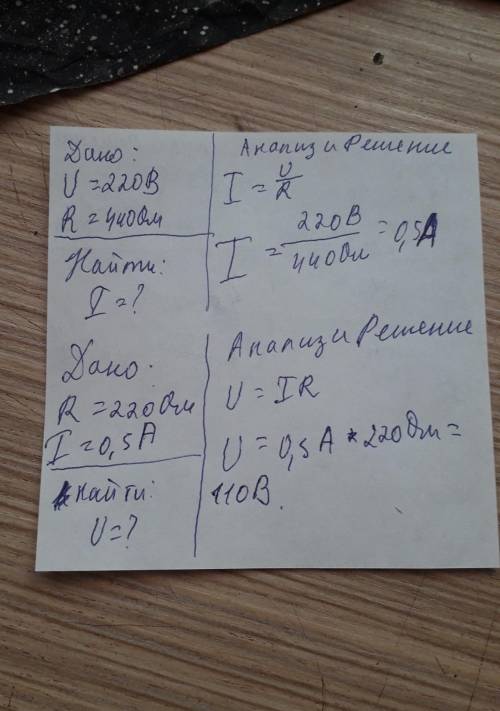 Дано:
U = 220В
R = 440Ом
Найти:
I = ?
Анализ и Решение
I = U/R
I = 220В/440Ом = 0,5А
Дано:
R = 220Ом
I = 0,5А
Найти:
U = ?
Анализ и Решение
U = IR
U = 0,5А * 220Ом =
110В.